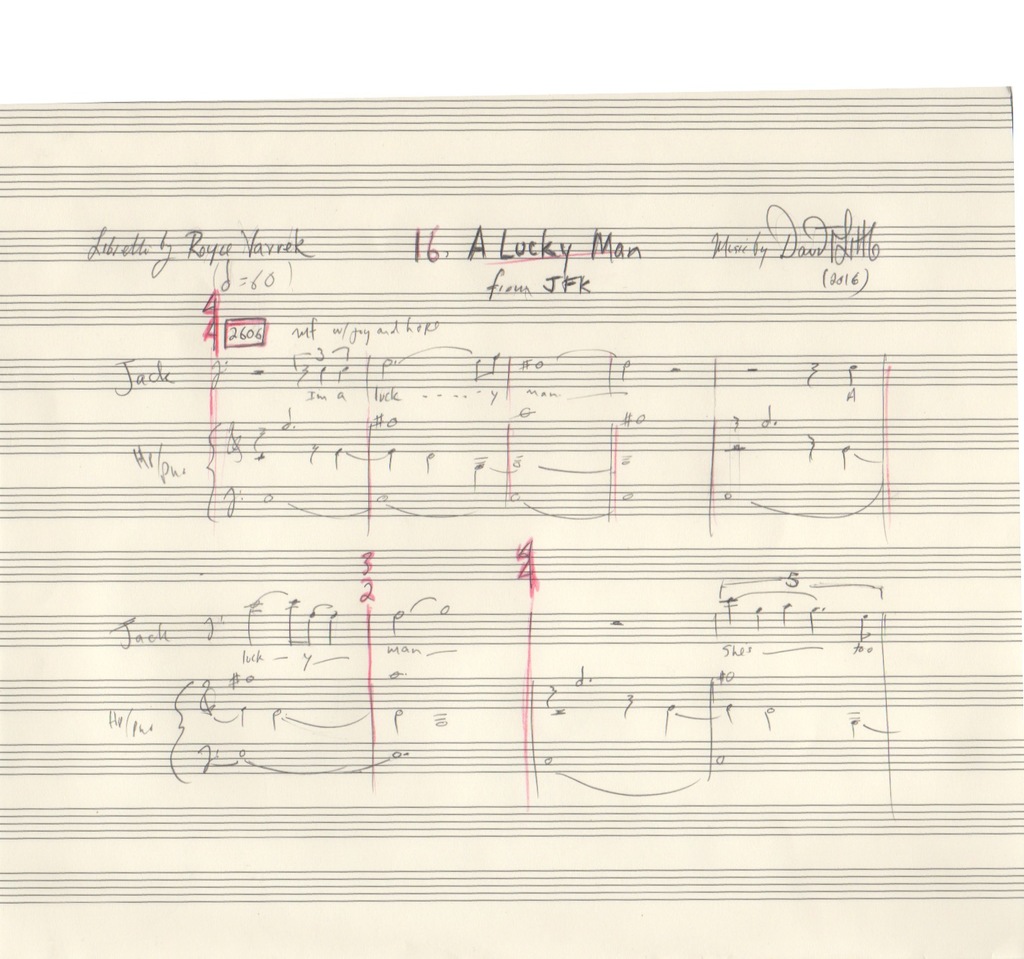 Libretto by Royce Vavrek 16. A Lucky Man Music by David T. Little
(♩=60) from JFK (2016)
4
4 2606 mf w/joy and hope
Jack 3
I'm a luck - - - - - y man A
Hp/pno.
3 4
2 4
Jack 5
luck - y man She's too
Hp/pno.